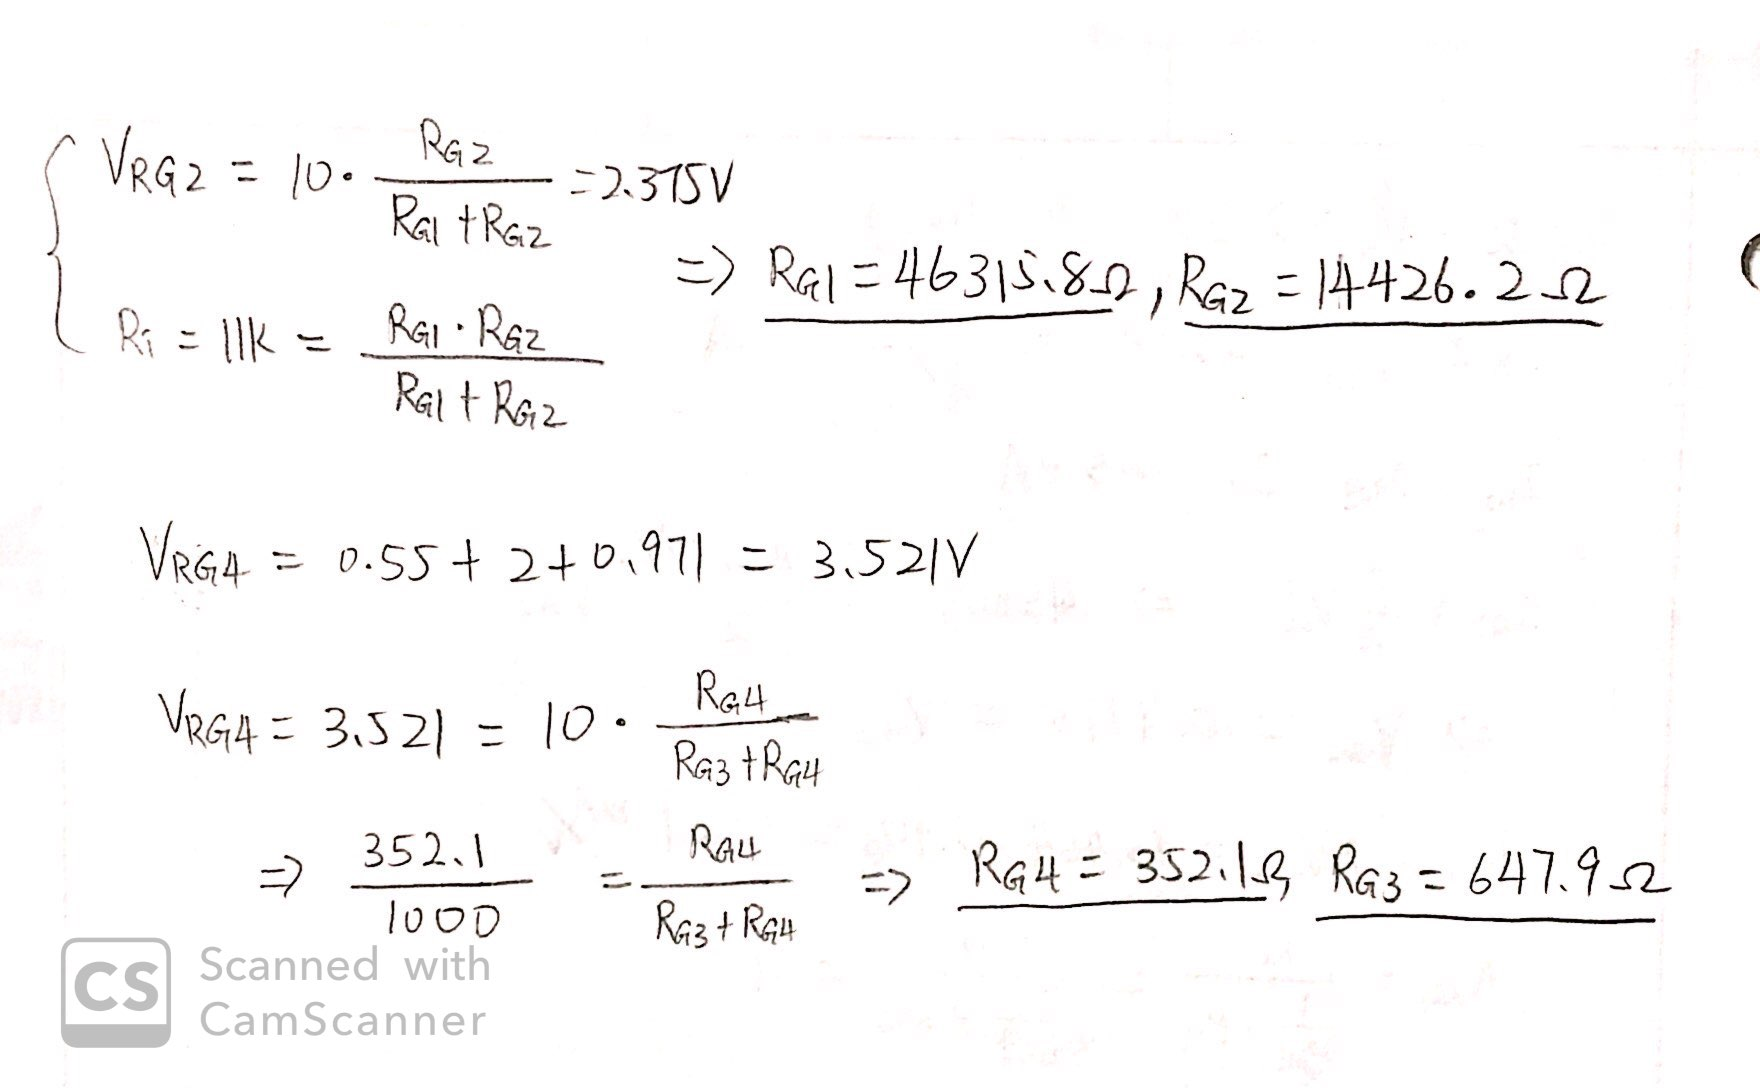 V_RG2 = 10 · R_G2 / (R_G1 + R_G2) = 2.375V
R_i = 11K = R_G1 · R_G2 / (R_G1 + R_G2)
=> R_G1 = 46315.8Ω, R_G2 = 14426.2Ω
V_RG4 = 0.55 + 2 + 0.971 = 3.521V
V_RG4 = 3.521 = 10 · R_G4 / (R_G3 + R_G4)
=> 352.1 / 1000 = R_G4 / (R_G3 + R_G4) => R_G4 = 352.1Ω, R_G3 = 647.9Ω
CS Scanned with
CamScanner